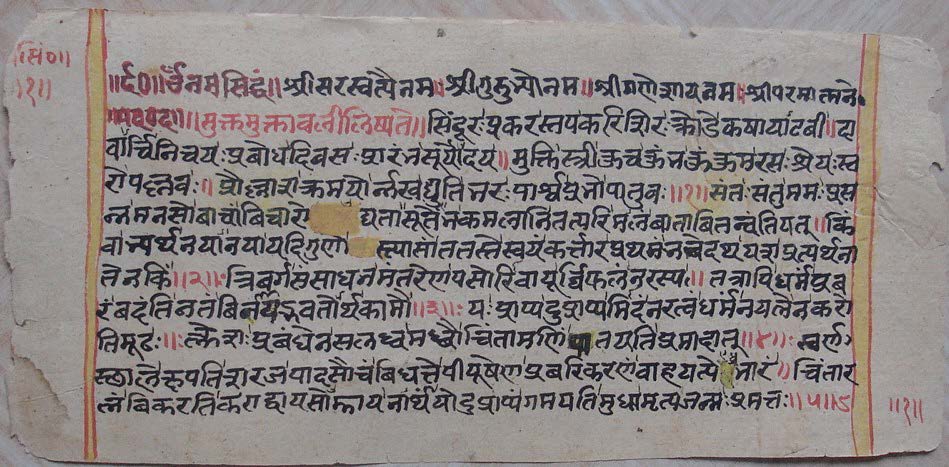 ॥सिं०॥
॥१॥
॥६०॥ र्उँनमसिद्धं॥ श्रीसरस्वत्यैनम॥ श्रीगुरुभ्योनम॥ श्रीगणेशायनम॥ श्रीपरमात्मने
॥सुक्तमुक्तावलीलिष्यते॥ सिंदुरःप्रकरस्तपकरिशिरःक्रोडेकषायाटवी॥ दा
वार्च्चिर्निचयःप्रबोधदिवसःप्रारंभसूर्योदय॥ मुक्तिस्त्रीकुचकुंभकुंकुमरसःश्रेयःस्त
रोपल्लवः॥ प्रोल्लाशक्रमयोर्न्नखद्युतिभरःपार्श्वप्रभोपातुवः॥१॥ संतःसंतुममःप्रस
न्नमनसोवाचांविचारो द्यतासूतेंभकमलानितत्परिमलंवातावितन्वंतियत्॥ किं
वाभ्यर्थनयानयायदिगुणो स्त्यासांततस्तेस्वयंकर्त्तारप्रथनंनचेदथयशप्रत्यर्थना
तेनकिं॥२॥ त्रिवर्गसंसाधनमंतरेणपसोरिवायूर्विफलंनरस्य॥ तत्रापिधर्मंप्रव
रंवदंतिनतंविनायद्भवतोर्थकामौ॥३॥ यःप्राप्यदुःप्राप्यमिदंनरत्वंधर्मंनयत्नेनकरो
तिमूढः॥ क्लेशःप्रबंधेनसलब्धमब्धौचिंतामणिंपातयतिप्रमादात्॥४॥ स्वर्ण
स्छालेक्षपतिशरजःपादसौचंविधत्तेपीयूषेणप्रवरिकरणंवाहयत्पेंधभारं॥ चिंतार
त्नंविकरतिकराद्वायसोड्डायनार्थंयोदुःप्राप्यंगमयतिमुधामृत्यजन्मःप्रमत्तः॥५॥
॥१॥